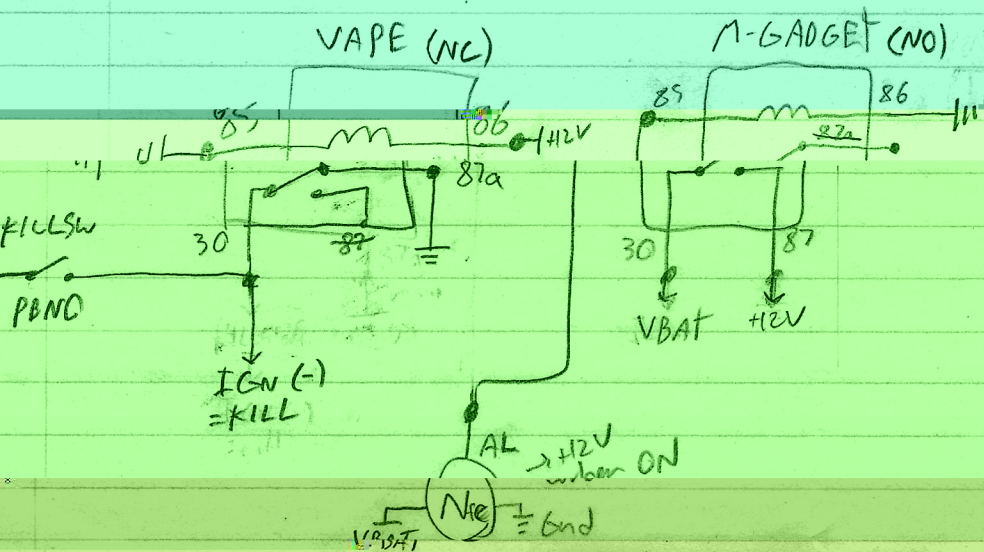 VAPE (NC)
M-GADGET (NO)
85
86
+12V
85
86
87a
87a
30
87
30
87
KILLSW
PBNO
IGN (-)
=KILL
VBAT
+12V
AL
→ +12V
when ON
NFC
VBBAT
Gnd